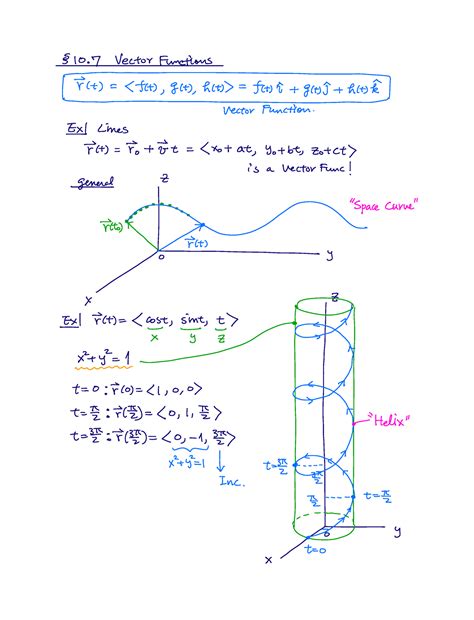 §10.7 Vector Functions
r⃗(t) = <f(t), g(t), h(t)> = f(t) î + g(t) ĵ + h(t) k̂
Vector Function.
Ex| Lines
r⃗(t) = r⃗₀ + v⃗ t = <x₀+at, y₀+bt, z₀+ct>
is a Vector Func!
general
z
"Space Curve"
r⃗(t₀)
r⃗(t)
0
y
x
Ex| r⃗(t) = <cost, sint, t>
x y z
x²+y²=1
t=0 : r⃗(0) = <1, 0, 0>
t=π/2 : r⃗(π/2) = <0, 1, π/2>
t=3π/2 : r⃗(3π/2) = <0, -1, 3π/2>
x²+y²=1
Inc.
z
"Helix"
t=3π/2
3π/2
π/2
t=π/2
0
y
t=0
x